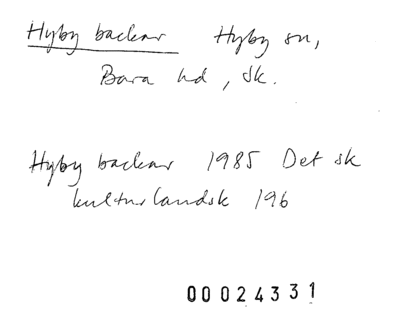 Hyby backar Hyby sn,
Bara hd, Sk.
Hyby backar 1985 Det sk
kulturlandsk 196
00024331